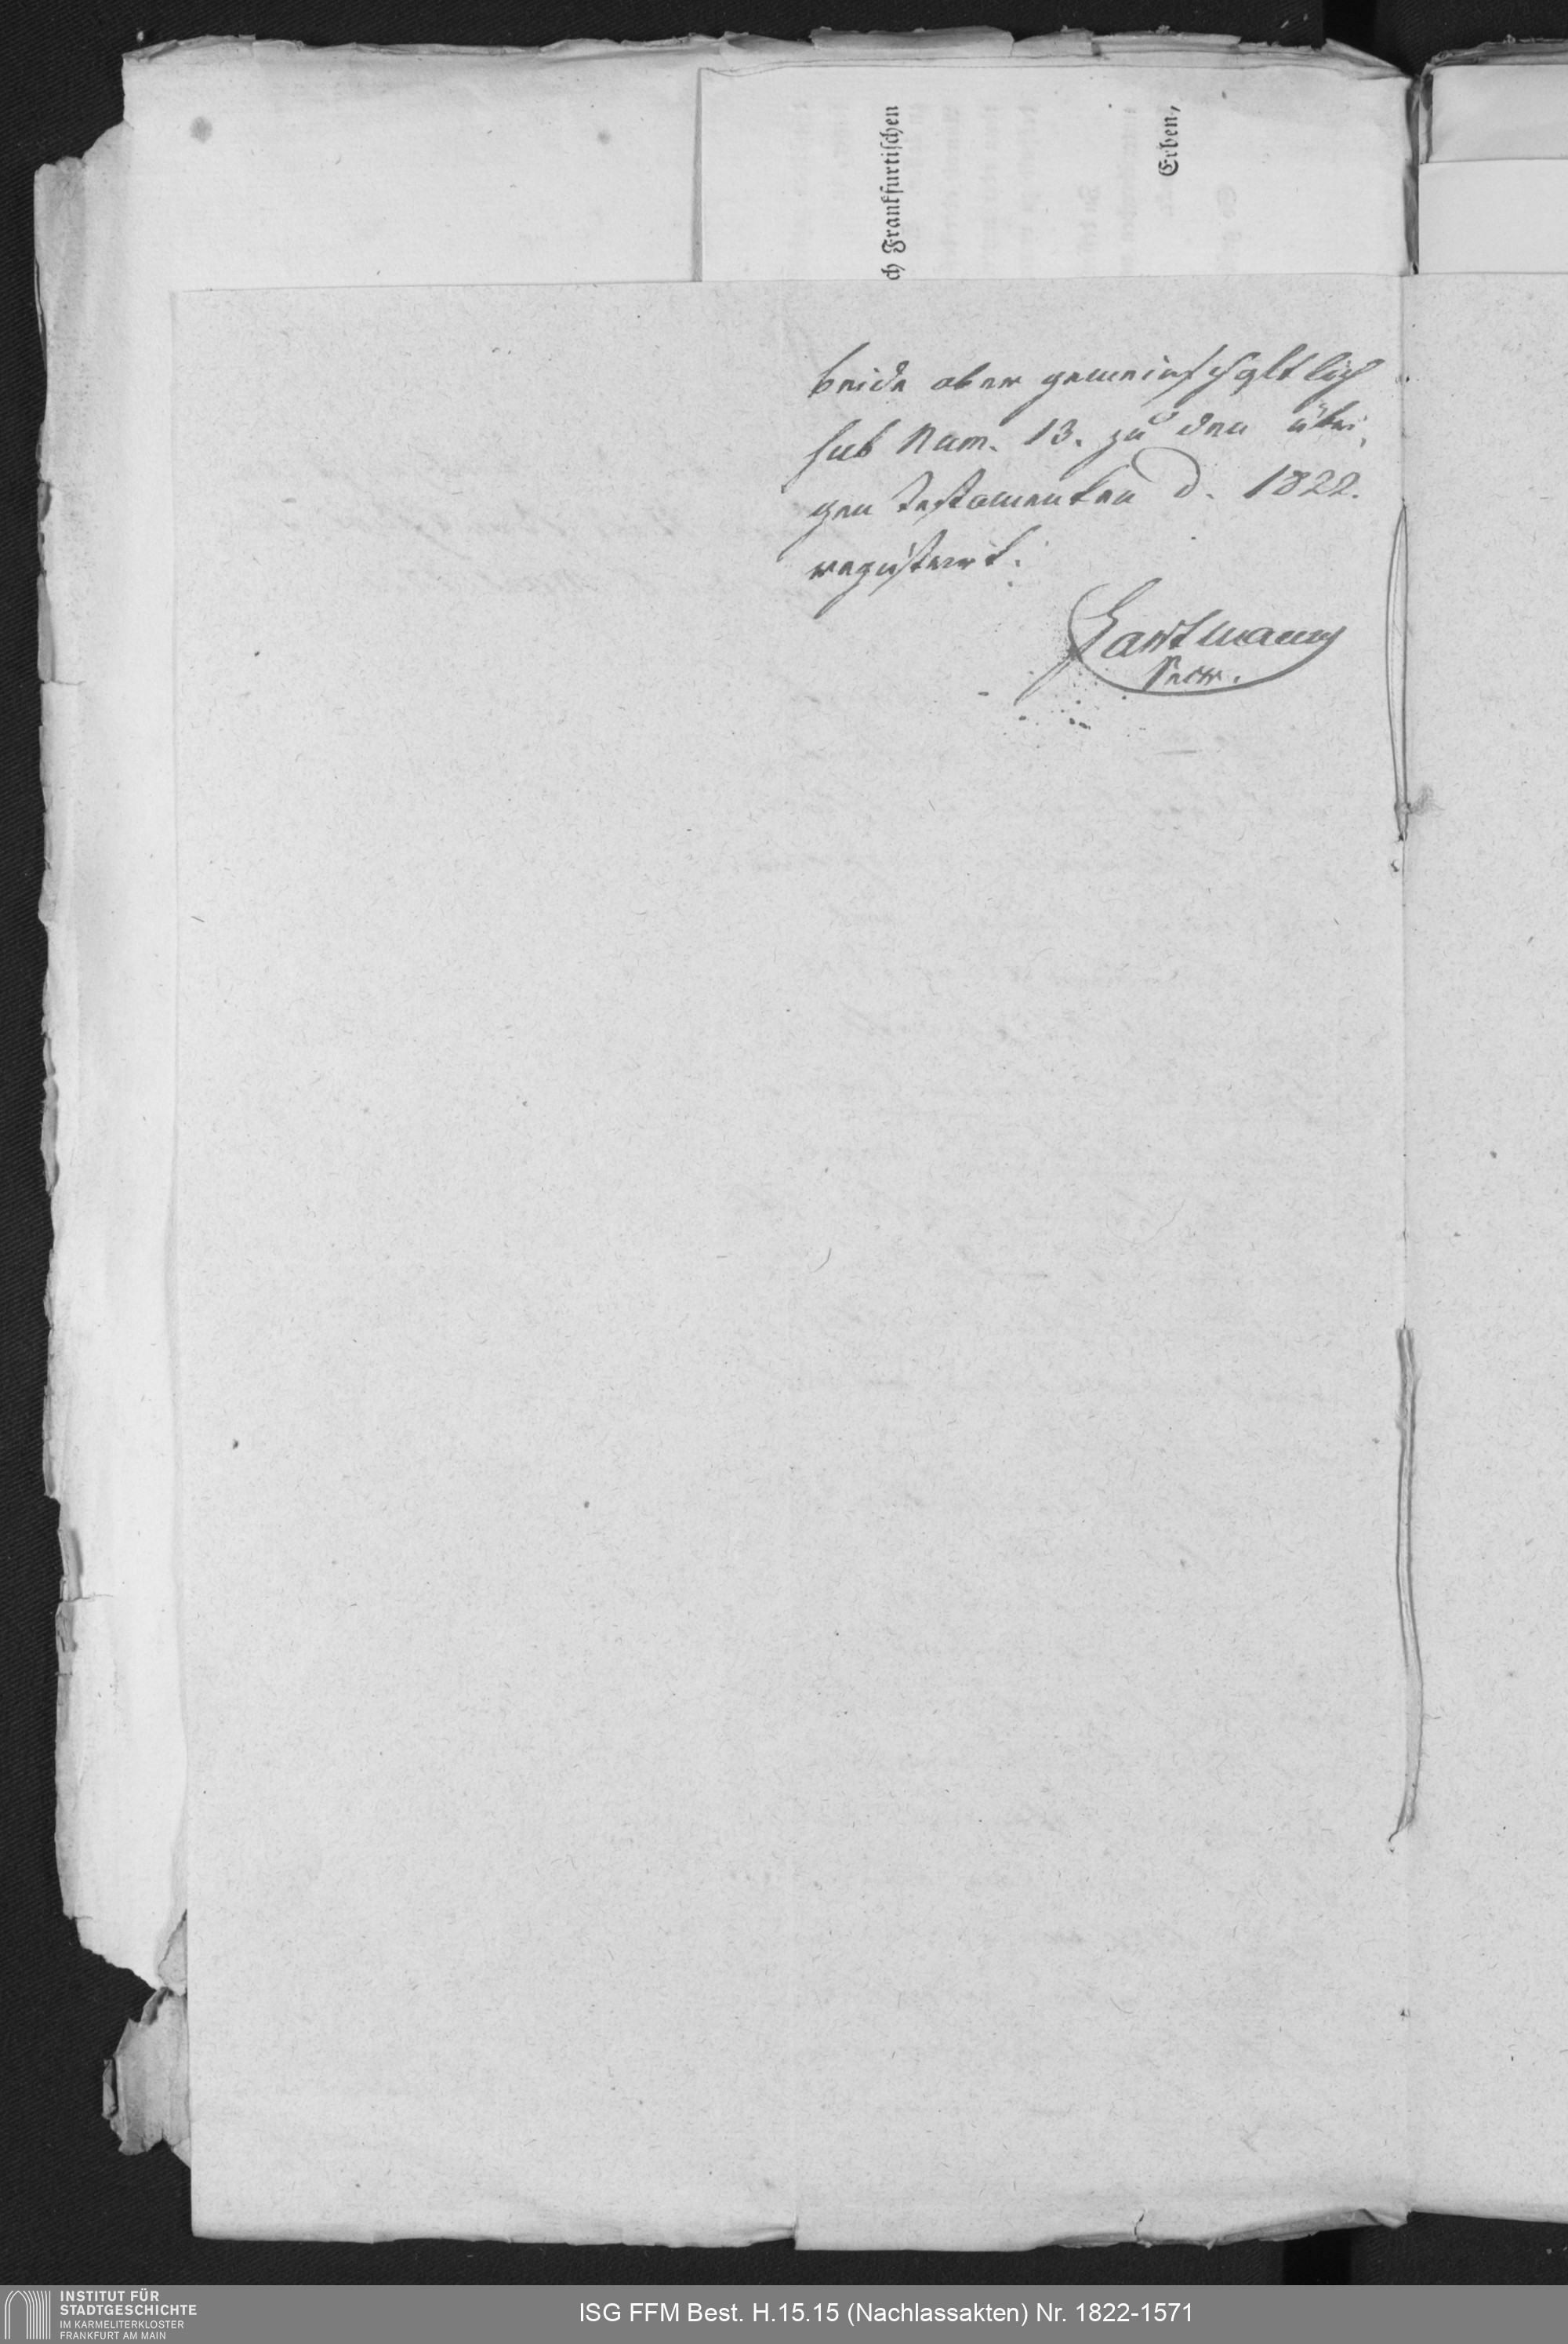 ch Frankfurtischen
Erben,
beide aber gemeinschaftlich
sub Num. 13. zu den übri,
gen Testamenten d. 1822.
registrirt.
Hartmann
Secr.
INSTITUT FÜR
STADTGESCHICHTE
IM KARMELITERKLOSTER
FRANKFURT AM MAIN
ISG FFM Best. H.15.15 (Nachlassakten) Nr. 1822-1571